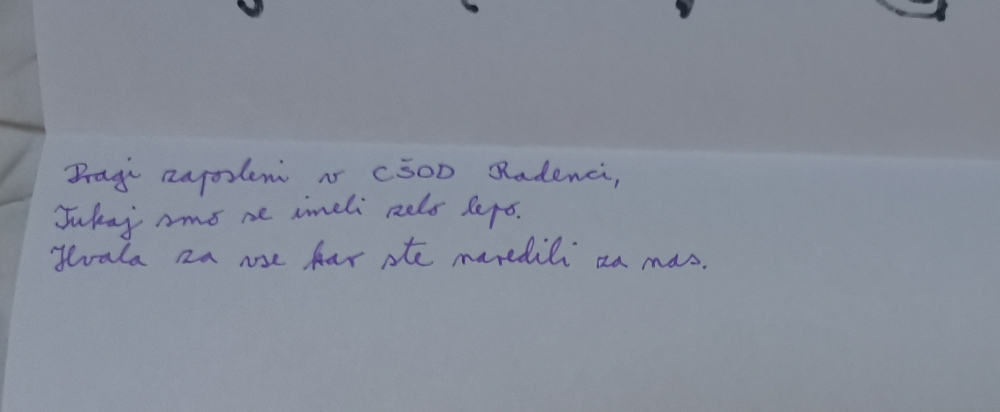 Dragi zaposleni v CŠOD Radenci,
Tukaj smo se imeli zelo lepo.
Hvala za vse kar ste naredili za nas.